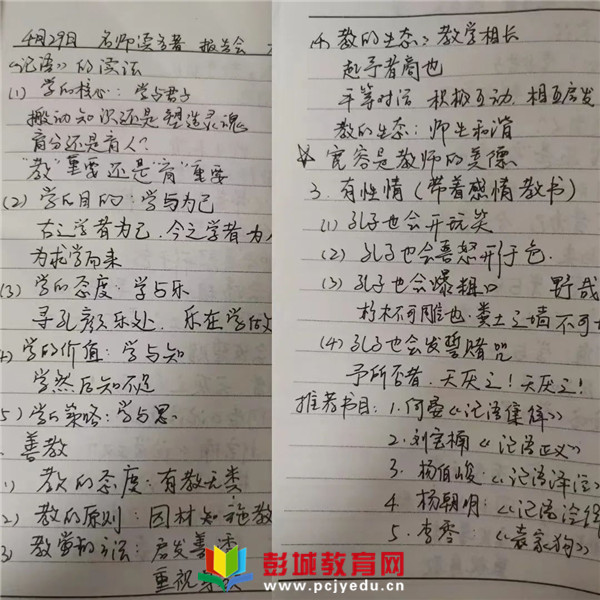 4月29日 名师读名著 报告会
《论语》的读法
(1) 学的核心：学与君子
搬动知识还是塑造灵魂
育分还是育人？
"教"重要还是"育"重要
(2) 学的目的：学与为己
古之学者为己，今之学者为人
为求学而来
(3) 学的态度：学与乐
寻孔颜乐处，乐在学
学的价值：学与知
学然后知不足
5) 学的策略：学与思
善教
1) 教的态度：有教无类
2) 教的原则：因材施教
3) 教学的方法：启发善
重视
4. 教的生态：教学相长
起予者商也
平等对话 积极互动，相互启发
教的生态：师生和谐
☆ 宽容是教师的美德
3. 有性情（带着感情教书）
(1) 孔子也会开玩笑
(2) 孔子也会喜怒形于色.
(3) 孔子也会爆粗口 野哉
朽木不可雕也，粪土之墙不可
(4) 孔子也会发誓赌咒
予所否者，天厌之！天厌之！
推荐书目：1. 何晏《论语集解》
2. 刘宝楠《论语正义》
3. 杨伯峻：《论语译注》
4. 杨朝明：《论语诠解
5. 李零：《丧家狗》
彭城教育网
www.pcjyedu.cn